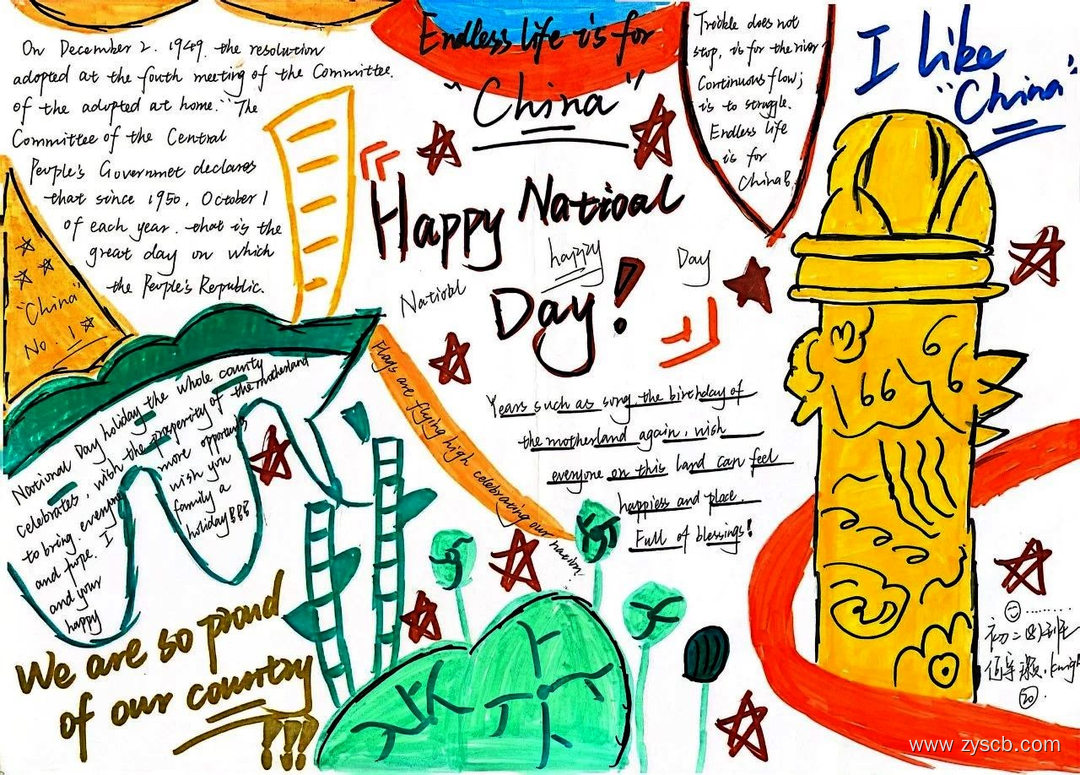 On December 2. 1949. the resolution
adopted at the fouth meeting of the Committee.
of the adupted at home." The
Committee of the Central
People's Governmet declares
that since 1950, October 1
of each year. that is the
great day on which
the People's Republic.
Endless life is for
"China"
Trickle does not
stop, is for the river
Continuous flow;
is to struggle.
Endless life
is for
China
I like
"China"
《Happy Natioal
Day!》
happy
Day
Natiobl
"China"
No. 1
Flags are flying high celebrating our nation.
National Day holiday the whole county
celebrates, wish the prosperity of the motherland
to bring. everyone more opportunity
and hope. I wish you
and your family a
happy holiday
Years such as song the birthday of
the motherland again, wish
everyone on this land can feel
happiess and place.
Full of blessings!
We are so proud
of our country
!!!
初二
20
www.zyscb.com